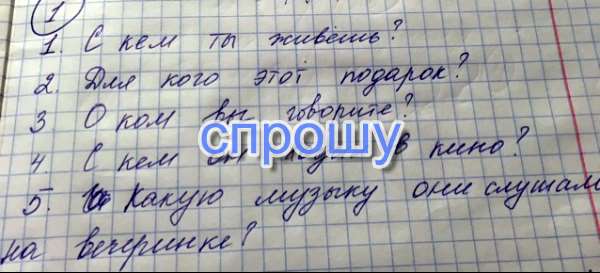 1
1. С кем ты живёшь?
2. Для кого этот подарок?
3 О ком вы говорите?
спрошу
4. С кем в кино?
5. Какую музыку они слушаю
на вечеринке?